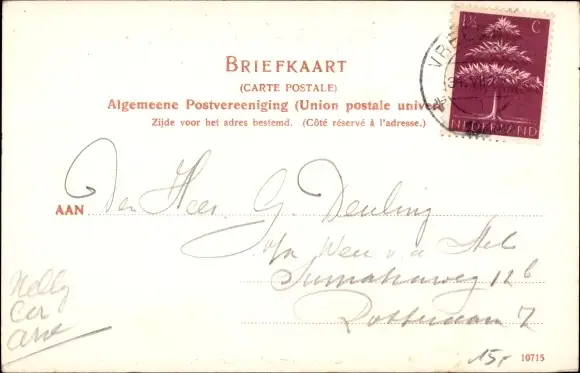 1½ C
NEDERLAND
BRIEFKAART
(CARTE POSTALE)
Algemeene Postvereeniging (Union postale univer
Zijde voor het adres bestemd. (Côté réservé à l'adresse.)
AAN Den Heer G. Deuling
p/a Wed v.d. Stel
Sumatraweg 12b
Rotterdam Z
Nelly
Cor
15,-
10715